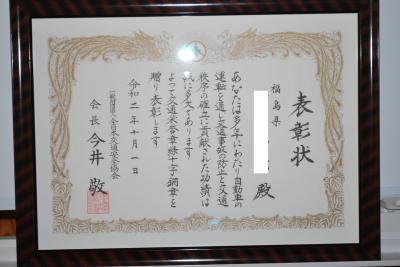 表彰状
福島県
殿
あなたは多年にわたり自動車の
運転を通し交通事故の防止と交通
秩序の確立に貢献された功績は
誠に多大であります
よつて交通栄誉章緑十字銅章を
贈り表彰します
令和二年十月一日
一般財団法人全日本交通安全協会
会長 今井 敬